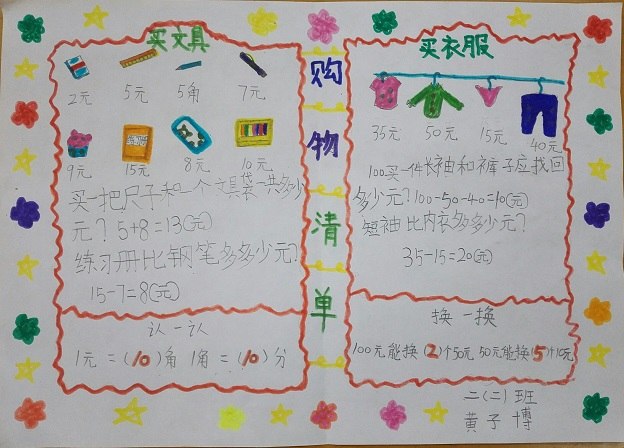 买文具
2元 5元 5角 7元
9元 15元 8元 10元
练习册
买一把尺子和一个文具袋一共多少
元？5+8=13(元)
练习册比钢笔多多少元？
15-7=8(元)
认一认
1元=(10)角 1角=(10)分
购物清单
买衣服
35元 50元 15元 40元
100买一件长袖和裤子应找回
多少元？100-50-40=10(元)
短袖比内衣多多少元？
35-15=20(元)
换一换
100元能换(2)个50元 50元能换(5)个10元
二(二)班
黄子博